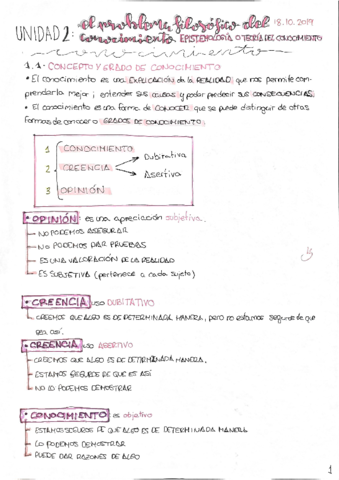 UNIDAD 2: el problema filosófico del 18.10.2019
conocimiento: EPISTEMOLOGÍA O TEORÍA DEL CONOCIMIENTO
conocimiento
1.1- CONCEPTO Y GRADO DE CONOCIMIENTO
• El conocimiento es una EXPLICACIÓN de la REALIDAD que nos permite com-
prenderla mejor, entender sus causas y poder predecir sus CONSECUENCIAS.
• El conocimiento es una forma de CONOCER que se puede distinguir de otras
formas de conocer o GRADOS DE CONOCIMIENTO:
1 CONOCIMIENTO
Dubitativa
2. CREENCIA
Asertiva
3 OPINIÓN
• OPINIÓN: es una apreciación subjetiva.
NO PODEMOS ASEGURAR
NO PODEMOS DAR PRUEBAS
ES UNA VALORACIÓN DE LA REALIDAD
ES SUBJETIVA (pertenece a cada sujeto)
• CREENCIA uso DUBITATIVO
CREEMOS QUE ALGO ES DE DETERMINADA MANERA, pero no estamos seguros de que
sea así.
• CREENCIA uso ASERTIVO
CREEMOS QUE ALGO ES DE DETERMINADA MANERA.
ESTAMOS SEGUROS DE QUE ES ASÍ
NO LO PODEMOS DEMOSTRAR
• CONOCIMIENTO es objetivo
ESTAMOS SEGUROS DE QUE ALGO ES DE DETERMINADA MANERA
LO PODEMOS DEMOSTRAR
PUEDE DAR RAZONES DE ALGO
1